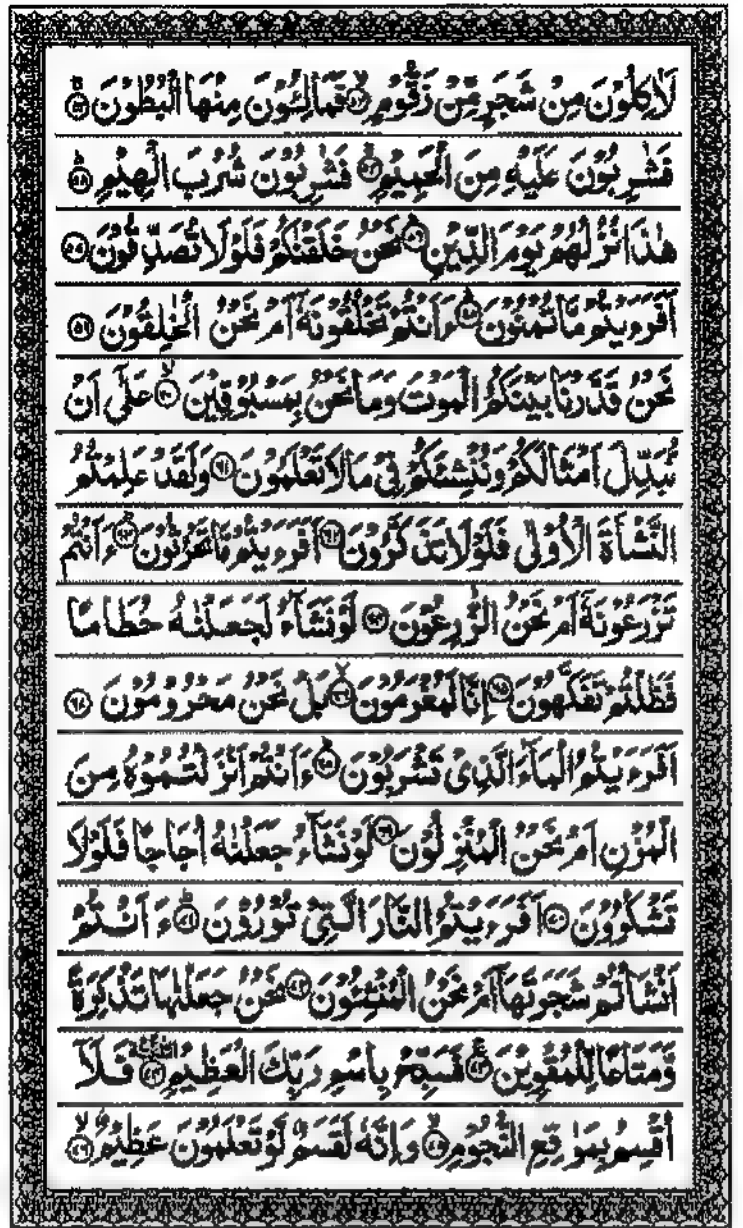 لَاٰكِلُوْنَ مِنْ شَجَرٍ مِّنْ زَقُّوْمٍ ۙ﴿۵۲﴾ فَمَالِـُٔوْنَ مِنْهَا الْبُطُوْنَ ۚ﴿۵۳﴾
فَشٰرِبُوْنَ عَلَيْهِ مِنَ الْحَمِيْمِ ۚ﴿۵۴﴾ فَشٰرِبُوْنَ شُرْبَ الْهِيْمِ ؕ﴿۵۵﴾
هٰذَا نُزُلُهُمْ يَوْمَ الدِّيْنِ ؕ﴿۵۶﴾ نَحْنُ خَلَقْنٰكُمْ فَلَوْلَا تُصَدِّقُوْنَ ﴿۵۷﴾
اَفَرَءَيْتُمْ مَّا تُمْنُوْنَ ؕ﴿۵۸﴾ ءَاَنْتُمْ تَخْلُقُوْنَهٗٓ اَمْ نَحْنُ الْخٰلِقُوْنَ ﴿۵۹﴾
نَحْنُ قَدَّرْنَا بَيْنَكُمُ الْمَوْتَ وَمَا نَحْنُ بِمَسْبُوْقِيْنَ ۙ﴿۶۰﴾ عَلٰٓى اَنْ
نُّبَدِّلَ اَمْثَالَكُمْ وَنُنْشِئَكُمْ فِيْ مَا لَا تَعْلَمُوْنَ ﴿۶۱﴾ وَلَقَدْ عَلِمْتُمُ
النَّشْاَةَ الْاُوْلٰى فَلَوْلَا تَذَكَّرُوْنَ ﴿۶۲﴾ اَفَرَءَيْتُمْ مَّا تَحْرُثُوْنَ ؕ﴿۶۳﴾ ءَاَنْتُمْ
تَزْرَعُوْنَهٗٓ اَمْ نَحْنُ الزّٰرِعُوْنَ ﴿۶۴﴾ لَوْ نَشَآءُ لَجَعَلْنٰهُ حُطَامًا
فَظَلْتُمْ تَفَكَّهُوْنَ ﴿۶۵﴾ اِنَّا لَمُغْرَمُوْنَ ۙ﴿۶۶﴾ بَلْ نَحْنُ مَحْرُوْمُوْنَ ﴿۶۷﴾
اَفَرَءَيْتُمُ الْمَآءَ الَّذِيْ تَشْرَبُوْنَ ؕ﴿۶۸﴾ ءَاَنْتُمْ اَنْزَلْتُمُوْهُ مِنَ
الْمُزْنِ اَمْ نَحْنُ الْمُنْزِلُوْنَ ﴿۶۹﴾ لَوْ نَشَآءُ جَعَلْنٰهُ اُجَاجًا فَلَوْلَا
تَشْكُرُوْنَ ﴿۷۰﴾ اَفَرَءَيْتُمُ النَّارَ الَّتِيْ تُوْرُوْنَ ؕ﴿۷۱﴾ ءَاَنْتُمْ
اَنْشَاْتُمْ شَجَرَتَهَآ اَمْ نَحْنُ الْمُنْشِـُٔوْنَ ﴿۷۲﴾ نَحْنُ جَعَلْنٰهَا تَذْكِرَةً
وَّمَتَاعًا لِّلْمُقْوِيْنَ ۚ﴿۷۳﴾ فَسَبِّحْ بِاسْمِ رَبِّكَ الْعَظِيْمِ ﴿۷۴﴾ فَلَآ
اُقْسِمُ بِمَوٰقِعِ النُّجُوْمِ ۙ﴿۷۵﴾ وَاِنَّهٗ لَقَسَمٌ لَّوْ تَعْلَمُوْنَ عَظِيْمٌ ۙ﴿۷۶﴾